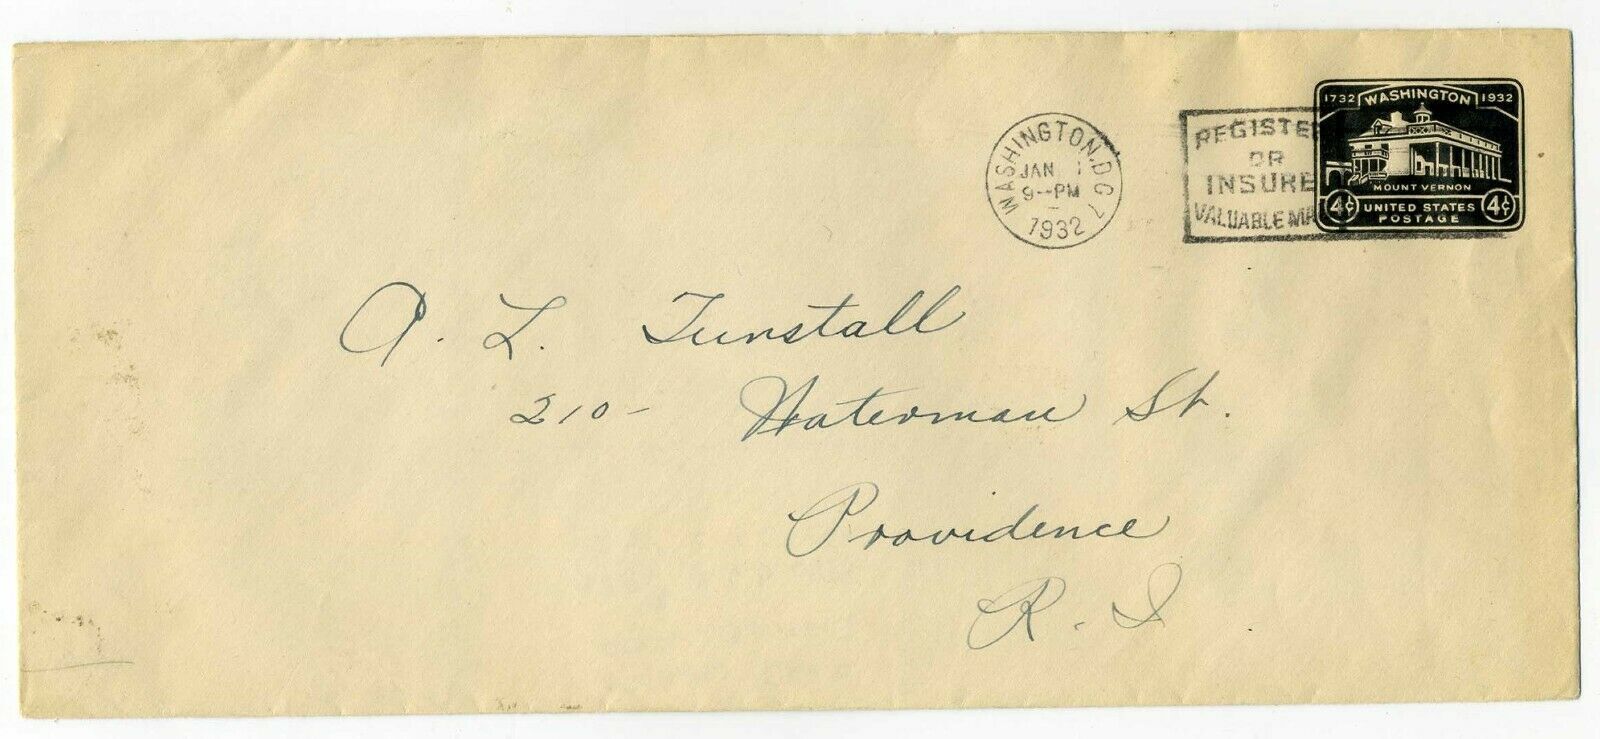 1732 WASHINGTON 1932
MOUNT VERNON
4¢ UNITED STATES POSTAGE 4¢
WASHINGTON, D.C. 7
JAN 1
9--PM
1932
REGISTE
OR
INSURE
VALUABLE MA
A. L. Tunstall
210- Waterman St.
Providence
R. I